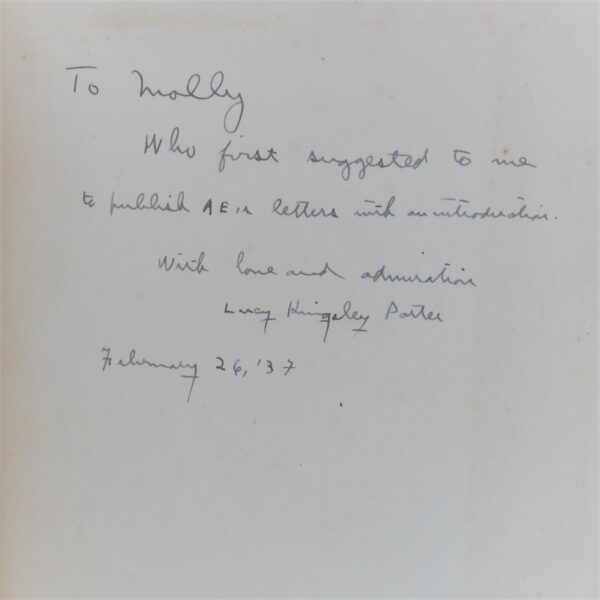 To Molly
Who first suggested to me
to publish AE's letters with an introduction.
With love and admiration
Lucy Kingsley Porter
February 26, '37